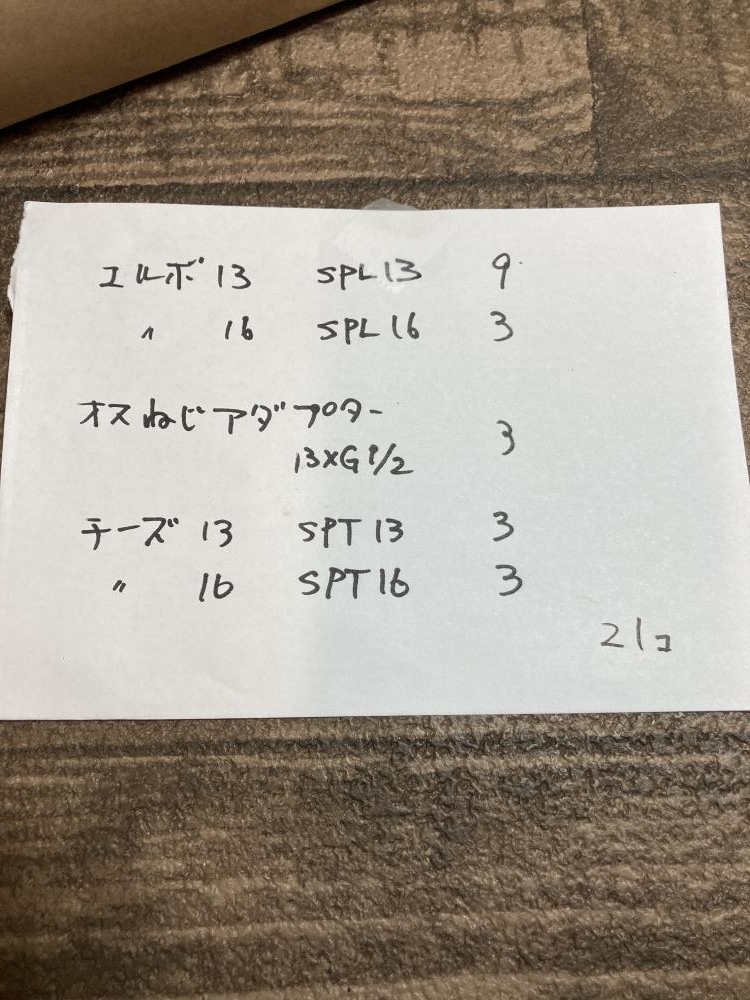 エルボ 13 SPL13 9
〃 16 SPL16 3
オスねじアダプター
13×G1/2 3
チーズ 13 SPT13 3
〃 16 SPT16 3
21コ